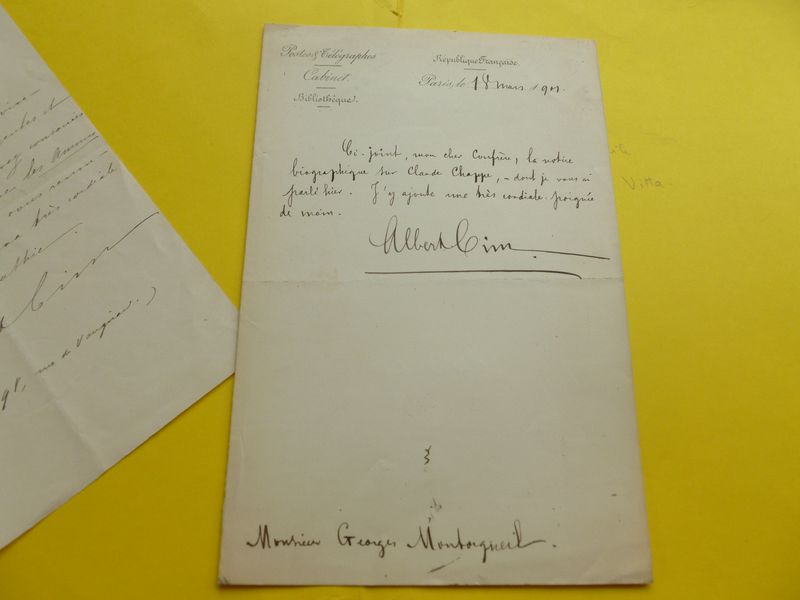 Postes & Télégraphes
Cabinet.
Bibliothèque.
République Française.
Paris, le 18 mars 1901.
Ci-joint, mon cher Confrère, la notice
biographique sur Claude Chappe, – dont je vous ai
parlé hier. J'y ajoute une très cordiale poignée
de main.
Albert Cim.
Monsieur Georges Montorgueil.
les
très cordiale
Cim
98, rue de Vaugirard.)
Villa